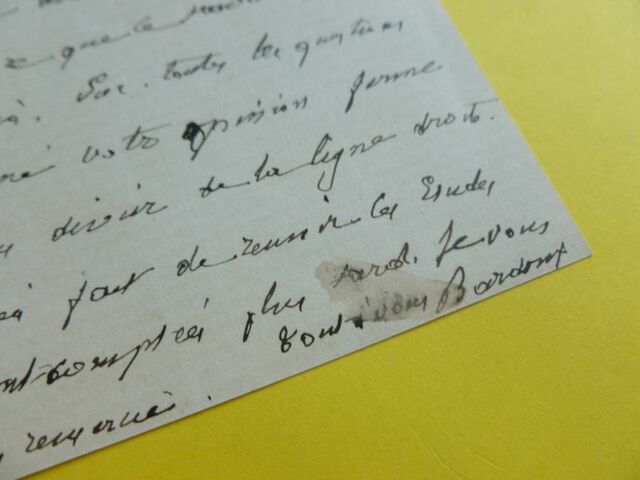 que le
Sur toutes les questions
votre opinion ferme
devoir de la ligne droite.
fait de réunir les Études
comptées plus tard. Je vous
remercie.
tout à vous Bardoux